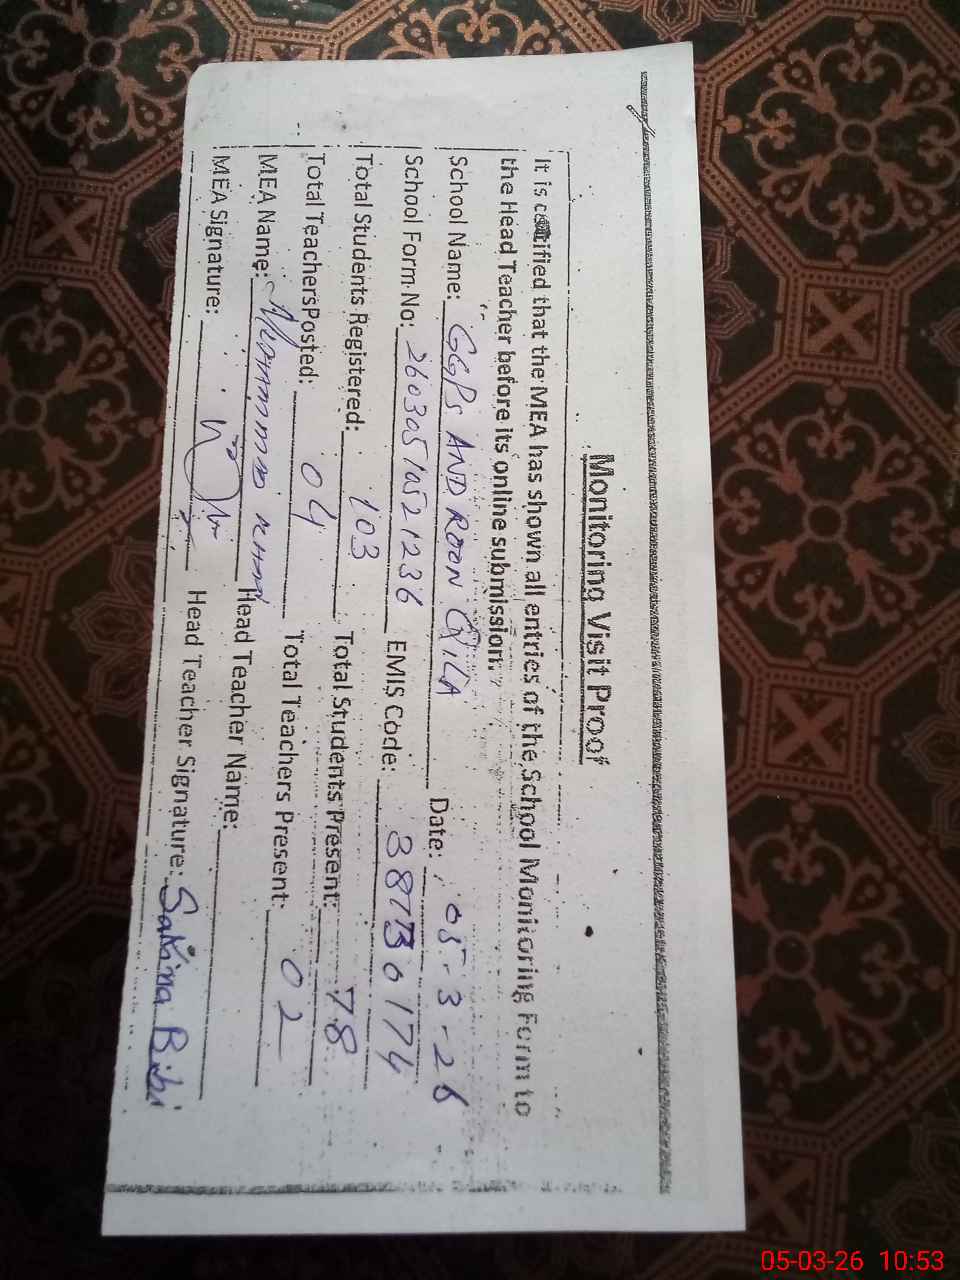 Monitoring Visit Proof
It is certified that the MEA has shown all entries of the School Monitoring Form to
the Head Teacher before its online submission.
School Name: GGPS ANDROON QILA Date: 05-3-26
School Form No: 26030510521236 EMIS Code: 38130174
Total Students Registered: 103 Total Students Present: 78
Total Teachers Posted: 04 Total Teachers Present: 02
MEA Name: Head Teacher Name:
MEA Signature: Head Teacher Signature: Sakina Bibi
05-03-26 10:53